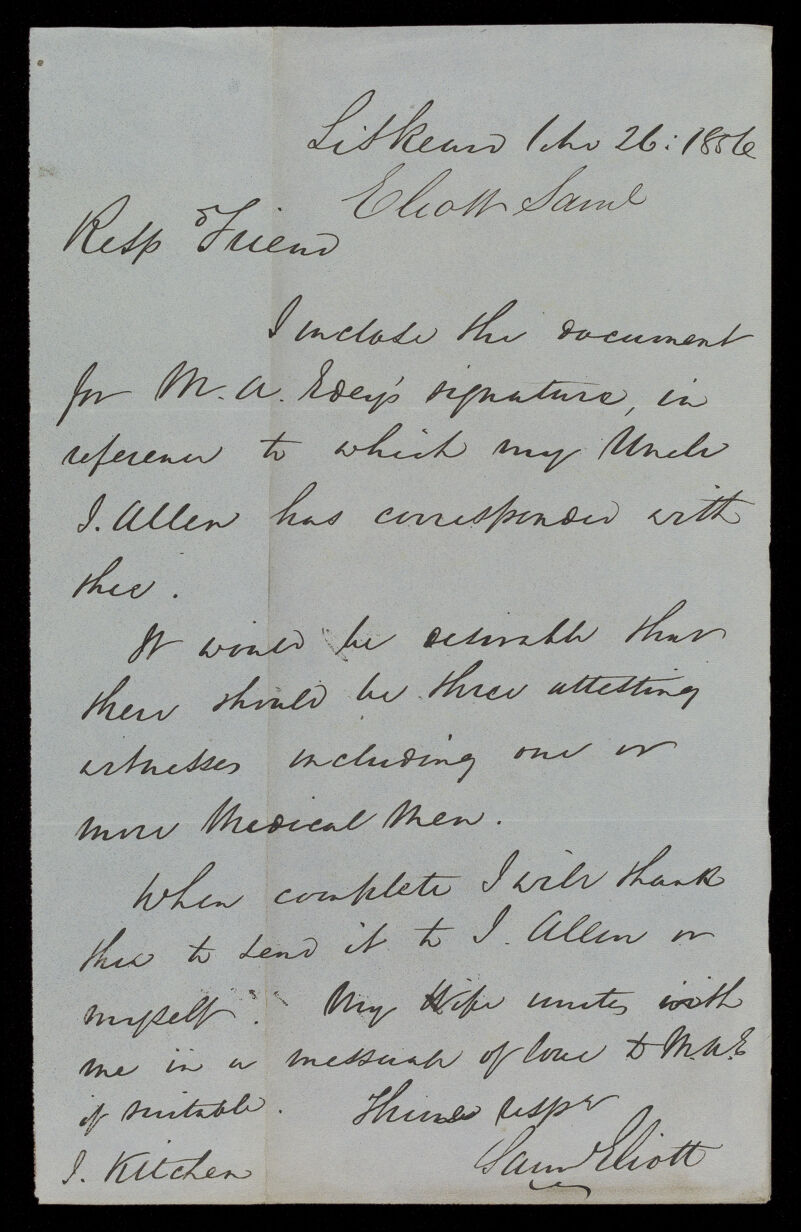 Liskeard 1 Mo 26: 1856
Eliott Saml
Respd Friend
I inclose the document
for M. A. Edey's signature, in
reference to which my Uncle
J. Allen has corresponded with
thee.
It would be desirable that
there should be three attesting
witnesses including one or
more Medical Men.
When complete I will thank
thee to send it to J. Allen or
myself. My Wife unites with
me in a message of love to M.A.E
if suitable. Thine respy
Saml Eliott
J. Kitchen